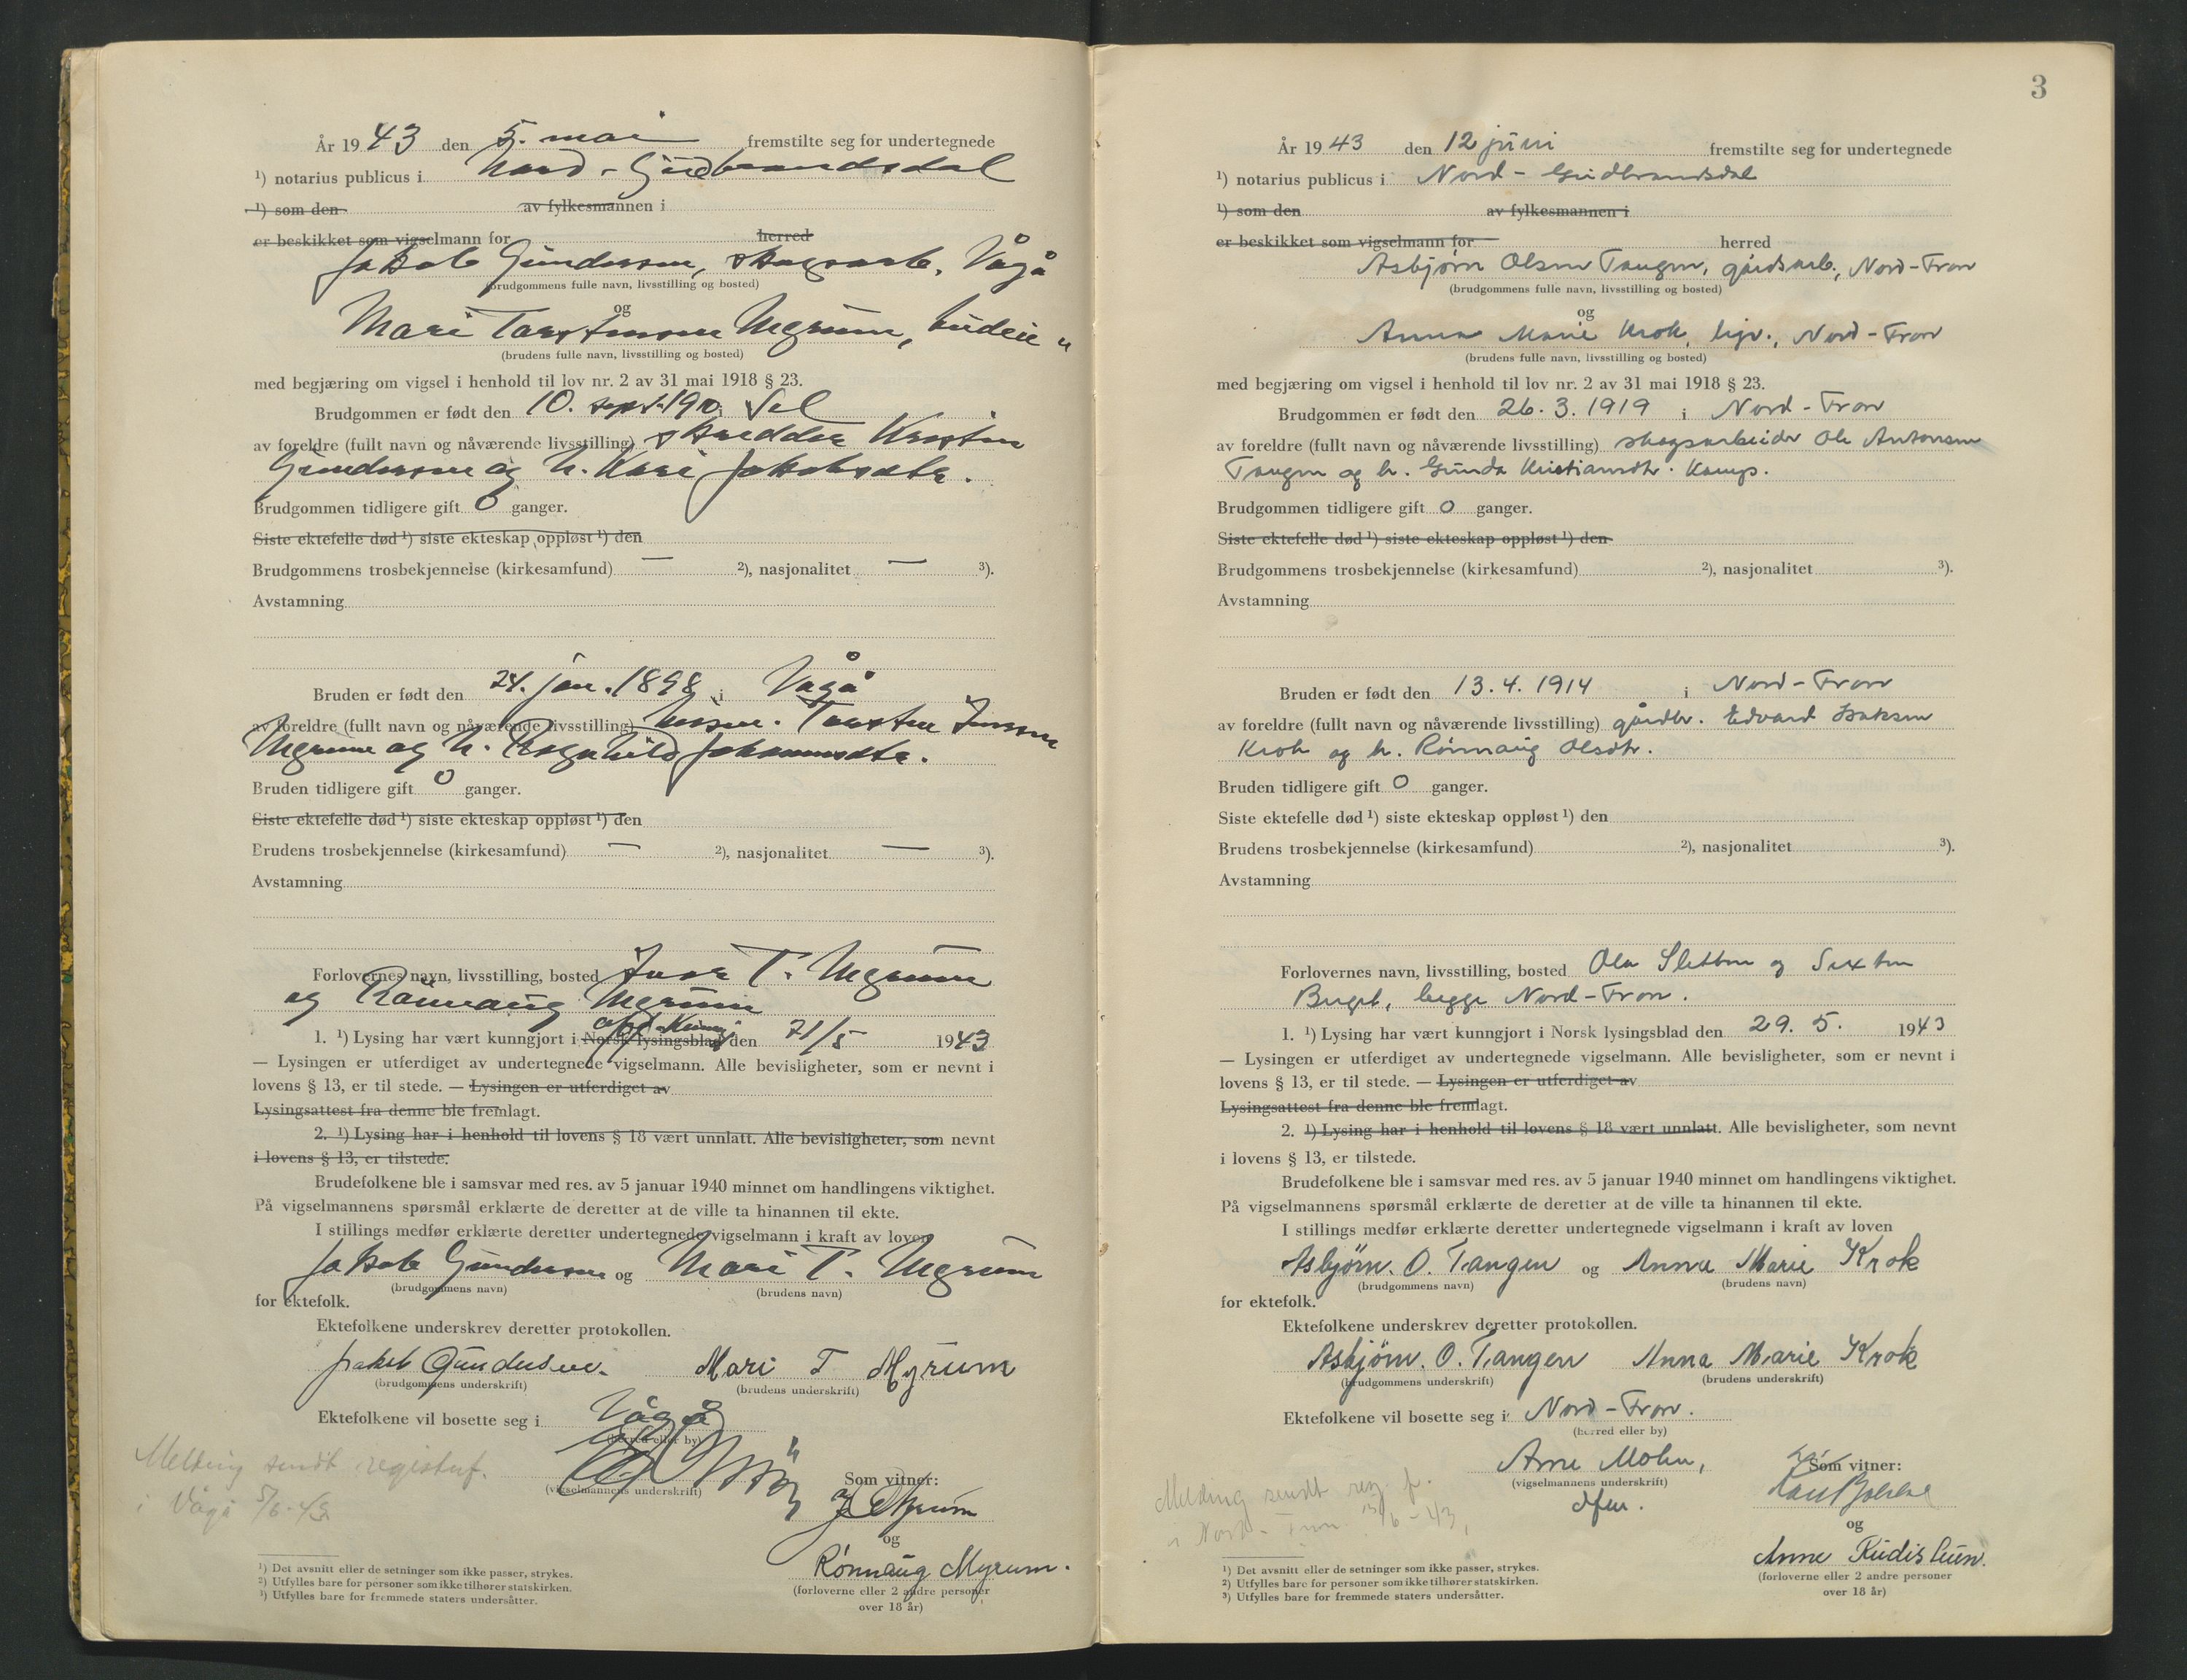 År 1943 den 5. mai fremstilte seg for undertegnede
¹) notarius publicus i Nord-Gudbrandsdal
¹) som den av fylkesmannen i
er beskikket som vigselmann for herred
Jakob Gundersen, skogsarb. Vågå
(brudgommens fulle navn, livsstilling og bosted)
og
Mari Torstensen Myrum, budeie "
(brudens fulle navn, livsstilling og bosted)
med begjæring om vigsel i henhold til lov nr. 2 av 31 mai 1918 § 23.
Brudgommen er født den 10. sept. 1910 Sel
av foreldre (fullt navn og nåværende livsstilling) skredder Kristen
Gundersen og h. Kari Jakobsdtr.
Brudgommen tidligere gift 0 ganger.
Siste ektefelle død ¹) siste ekteskap oppløst ¹) den
Brudgommens trosbekjennelse (kirkesamfund) — ²), nasjonalitet — ³).
Avstamning
Bruden er født den 24. jan. 1898 i Vågå
av foreldre (fullt navn og nåværende livsstilling) Torsten Iversen
Myrum og h. Ragnhild Johannesdtr.
Bruden tidligere gift 0 ganger.
Siste ektefelle død ¹) siste ekteskap oppløst ¹) den
Brudens trosbekjennelse (kirkesamfund) — ²), nasjonalitet — ³).
Avstamning
Forlovernes navn, livsstilling, bosted Ivar T. Myrum
og Rønnaug Myrum
1. ¹) Lysing har vært kunngjort i Norsk lysingsblad den 21/5 1943
— Lysingen er utferdiget av undertegnede vigselmann. Alle bevisligheter, som er nevnt i
lovens § 13, er til stede. — Lysingen er utferdiget av
Lysingsattest fra denne ble fremlagt.
2. ¹) Lysing har i henhold til lovens § 18 vært unnlatt. Alle bevisligheter, som nevnt
i lovens § 13, er tilstede.
Brudefolkene ble i samsvar med res. av 5 januar 1940 minnet om handlingens viktighet.
På vigselmannens spørsmål erklærte de deretter at de ville ta hinannen til ekte.
I stillings medfør erklærte deretter undertegnede vigselmann i kraft av loven
Jakob Gundersen og Mari T. Myrum
(brudgommens navn) (brudens navn)
for ektefolk.
Ektefolkene underskrev deretter protokollen.
Jakob Gundersen. Mari T Myrum
(brudgommens underskrift) (brudens underskrift)
Ektefolkene vil bosette seg i Vågå
(herred eller by)
Melding sendt registerf.
i Vågå 5/6-43
(vigselmannens underskrift)
Som vitner:
Myrum
og
Rønnaug Myrum.
(forloverne eller 2 andre personer
over 18 år)
¹) Det avsnitt eller de setninger som ikke passer, strykes.
²) Utfylles bare for personer som ikke tilhører statskirken.
³) Utfylles bare for fremmede staters undersåtter.
3
År 1943 den 12 juni fremstilte seg for undertegnede
¹) notarius publicus i Nord-Gudbrandsdal
¹) som den av fylkesmannen i
er beskikket som vigselmann for herred
Asbjørn Olsen Tangen, gårdsarb., Nord-Fron
(brudgommens fulle navn, livsstilling og bosted)
og
Anna Marie Krok, hjv., Nord-Fron
(brudens fulle navn, livsstilling og bosted)
med begjæring om vigsel i henhold til lov nr. 2 av 31 mai 1918 § 23.
Brudgommen er født den 26.3.1919 i Nord-Fron
av foreldre (fullt navn og nåværende livsstilling) skogsarbeider Ole Antonsen
Tangen og h. Gunda Kristiansdtr. Kamp.
Brudgommen tidligere gift 0 ganger.
Siste ektefelle død ¹) siste ekteskap oppløst ¹) den
Brudgommens trosbekjennelse (kirkesamfund) ²), nasjonalitet ³).
Avstamning
Bruden er født den 13.4.1914 i Nord-Fron
av foreldre (fullt navn og nåværende livsstilling) gårdbr. Edvard Isaksen
Krok og h. Rønnaug Olsdtr.
Bruden tidligere gift 0 ganger.
Siste ektefelle død ¹) siste ekteskap oppløst ¹) den
Brudens trosbekjennelse (kirkesamfund) ²), nasjonalitet ³).
Avstamning
Forlovernes navn, livsstilling, bosted Ola Sletten og Sixten
begge Nord-Fron.
1. ¹) Lysing har vært kunngjort i Norsk lysingsblad den 29. 5. 1943
— Lysingen er utferdiget av undertegnede vigselmann. Alle bevisligheter, som er nevnt i
lovens § 13, er til stede. — Lysingen er utferdiget av
Lysingsattest fra denne ble fremlagt.
2. ¹) Lysing har i henhold til lovens § 18 vært unnlatt. Alle bevisligheter, som nevnt
i lovens § 13, er tilstede.
Brudefolkene ble i samsvar med res. av 5 januar 1940 minnet om handlingens viktighet.
På vigselmannens spørsmål erklærte de deretter at de ville ta hinannen til ekte.
I stillings medfør erklærte deretter undertegnede vigselmann i kraft av loven
Asbjörn. O. Tangen og Anna Marie Krok
(brudgommens navn) (brudens navn)
for ektefolk.
Ektefolkene underskrev deretter protokollen.
Asbjörn. O. Tangen Anna Marie Krok
(brudgommens underskrift) (brudens underskrift)
Ektefolkene vil bosette seg i Nord-Fron.
(herred eller by)
Arne Mohn,
(vigselmannens underskrift)
dfm.
Melding sendt reg. f.
i Nord-Fron 15/6-43,
Som vitner:
og
Anne Rudislien.
(forloverne eller 2 andre personer
over 18 år)
¹) Det avsnitt eller de setninger som ikke passer, strykes.
²) Utfylles bare for personer som ikke tilhører statskirken.
³) Utfylles bare for fremmede staters undersåtter.